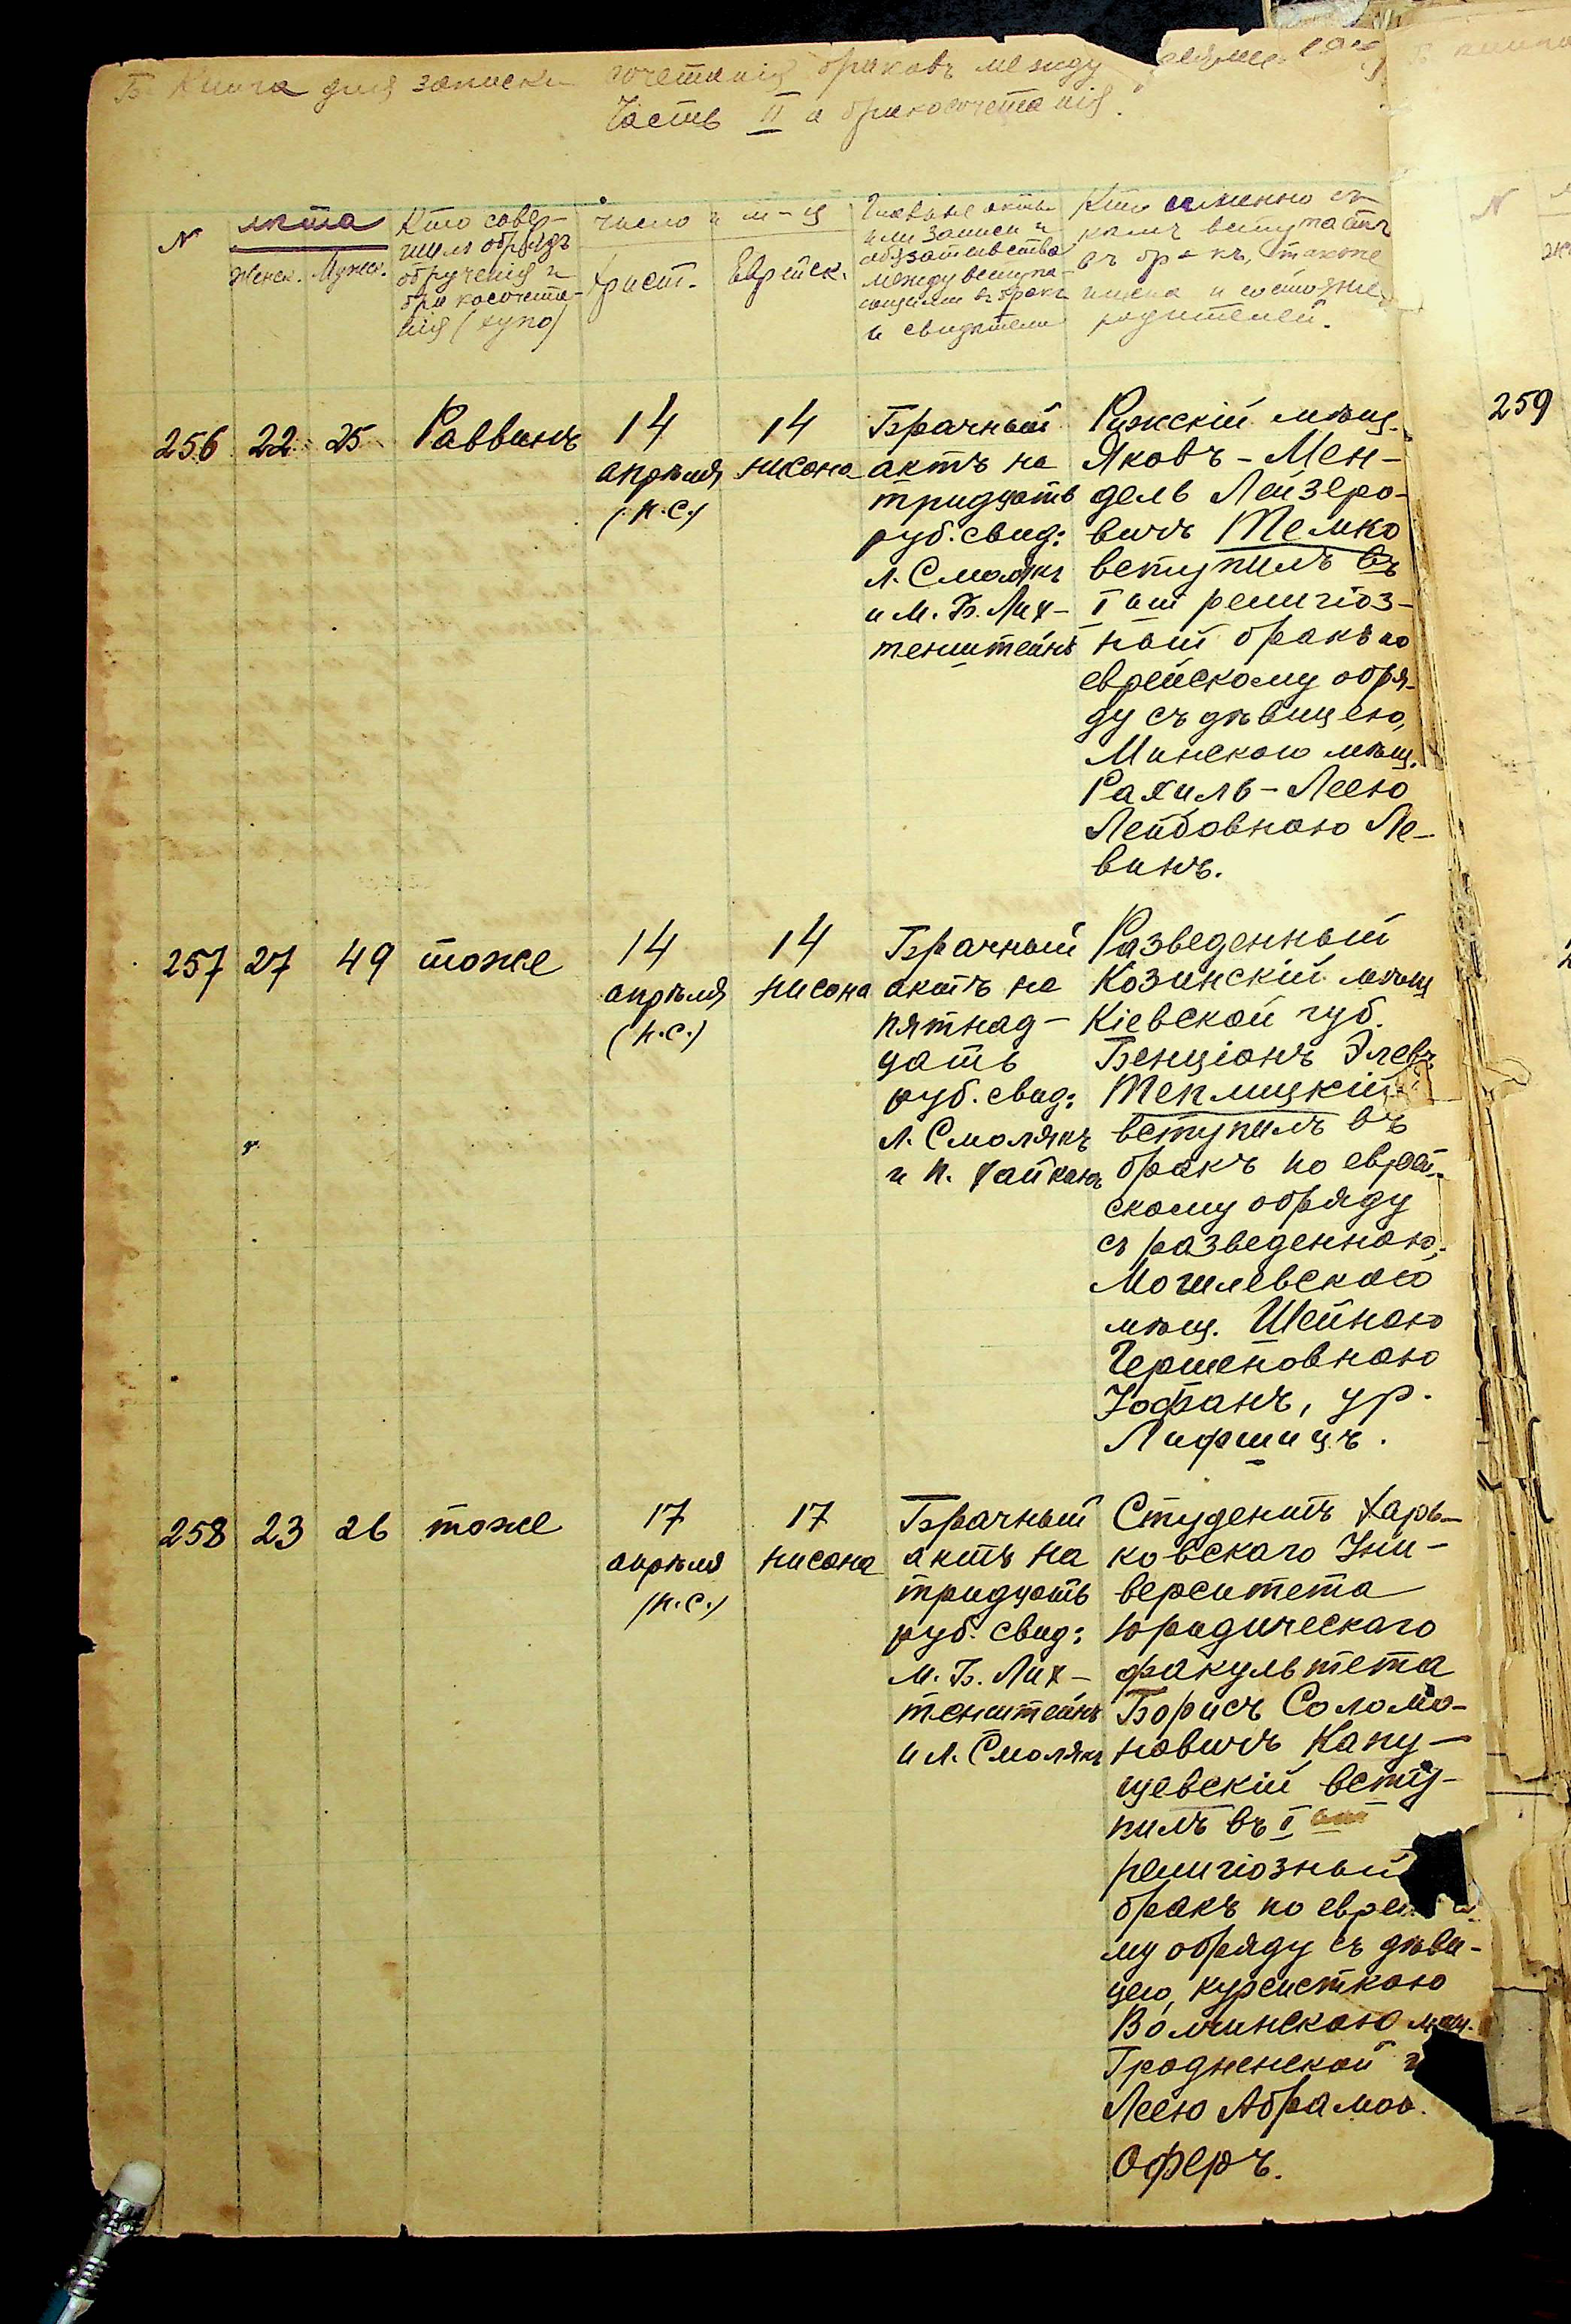 Б. Книга для записки сочетанія браковъ между
Часть II я бракосочетанія.
N
лѣта
Женск. Мужск.
Кто совер-
шилъ обрядъ
обрученія и
бракосочета-
нія (хупо)
число и м-ц
Христ.
Еврейск.
Главные акты
или записи и
обязательства
между вступа-
ющими въ бракъ
и свидѣтели
Кто именно съ
кѣмъ вступаетъ
въ бракъ, также
имена и состояніе
родителей.
N
256
22
25
Раввинъ
14
апрѣля
(н.с.)
14
нисона
Брачный
актъ на
тридцать
руб. свид:
Л. Смолякъ
и М. Б. Лих-
тенштейнъ
Рижскій мѣщ.
Яковъ-Мен-
дель Лейзеро-
вичъ Темко
вступилъ въ
I ый религіоз-
ный бракъ по
еврейскому обря-
ду съ дѣвицею,
Минскою мѣщ.
Рахиль-Леею
Лейбовною Ле-
винъ.
259
257
27
49
тоже
14
апрѣля
(н.с.)
14
нисона
Брачный
актъ на
пятнад-
цать
руб. свид:
Л. Смолякъ
и П. Хайкинъ
Разведенный
Козинскій мѣщ
Кіевской губ.
Бенціонъ Элевъ
Теплицкій
вступилъ въ
бракъ по еврей-
скому обряду
съ разведенною,
Могилевскою
мѣщ. Шейною
Гершеновною
Гофанъ, ур.
Лифшицъ.
258
23
26
тоже
17
апрѣля
(н.с.)
17
нисона
Брачный
актъ на
тридцать
руб. свид:
М. Б. Лих-
тенштейнъ
и Л. Смолякъ
Студентъ Харь-
ковскаго Уни-
верситета
юридическаго
факультета
Борисъ Соломо-
новичъ Капу-
щевскій всту-
пилъ въ I ый
религіозный
бракъ по еврей
му обряду съ дѣви-
цею, курсисткою
Волчинскою мѣщ.
Гродненской г
Леею Абрамов.
Оферъ.